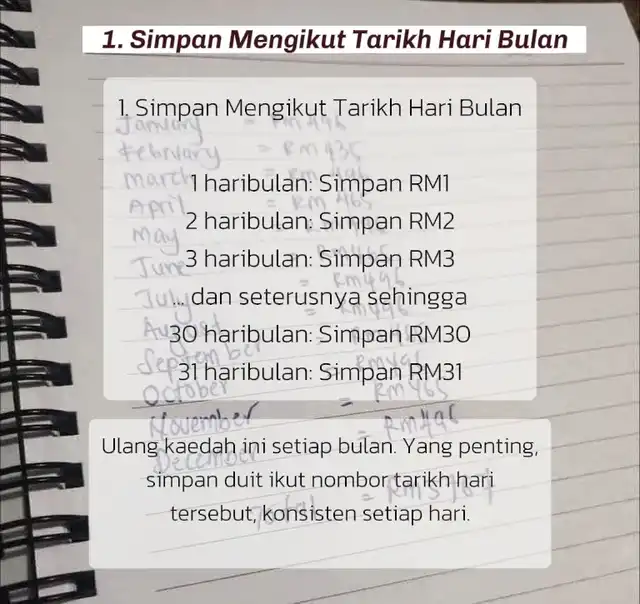 1. Simpan Mengikut Tarikh Hari Bulan
1. Simpan Mengikut Tarikh Hari Bulan
1 haribulan: Simpan RM1
2 haribulan: Simpan RM2
3 haribulan: Simpan RM3
... dan seterusnya sehingga
30 haribulan: Simpan RM30
31 haribulan: Simpan RM31
Ulang kaedah ini setiap bulan. Yang penting,
simpan duit ikut nombor tarikh hari
tersebut, konsisten setiap hari.
January = RM496
February = RM435
March
April = RM465
May
June
July = RM496
August
September
October = RM465
November = RM496
December